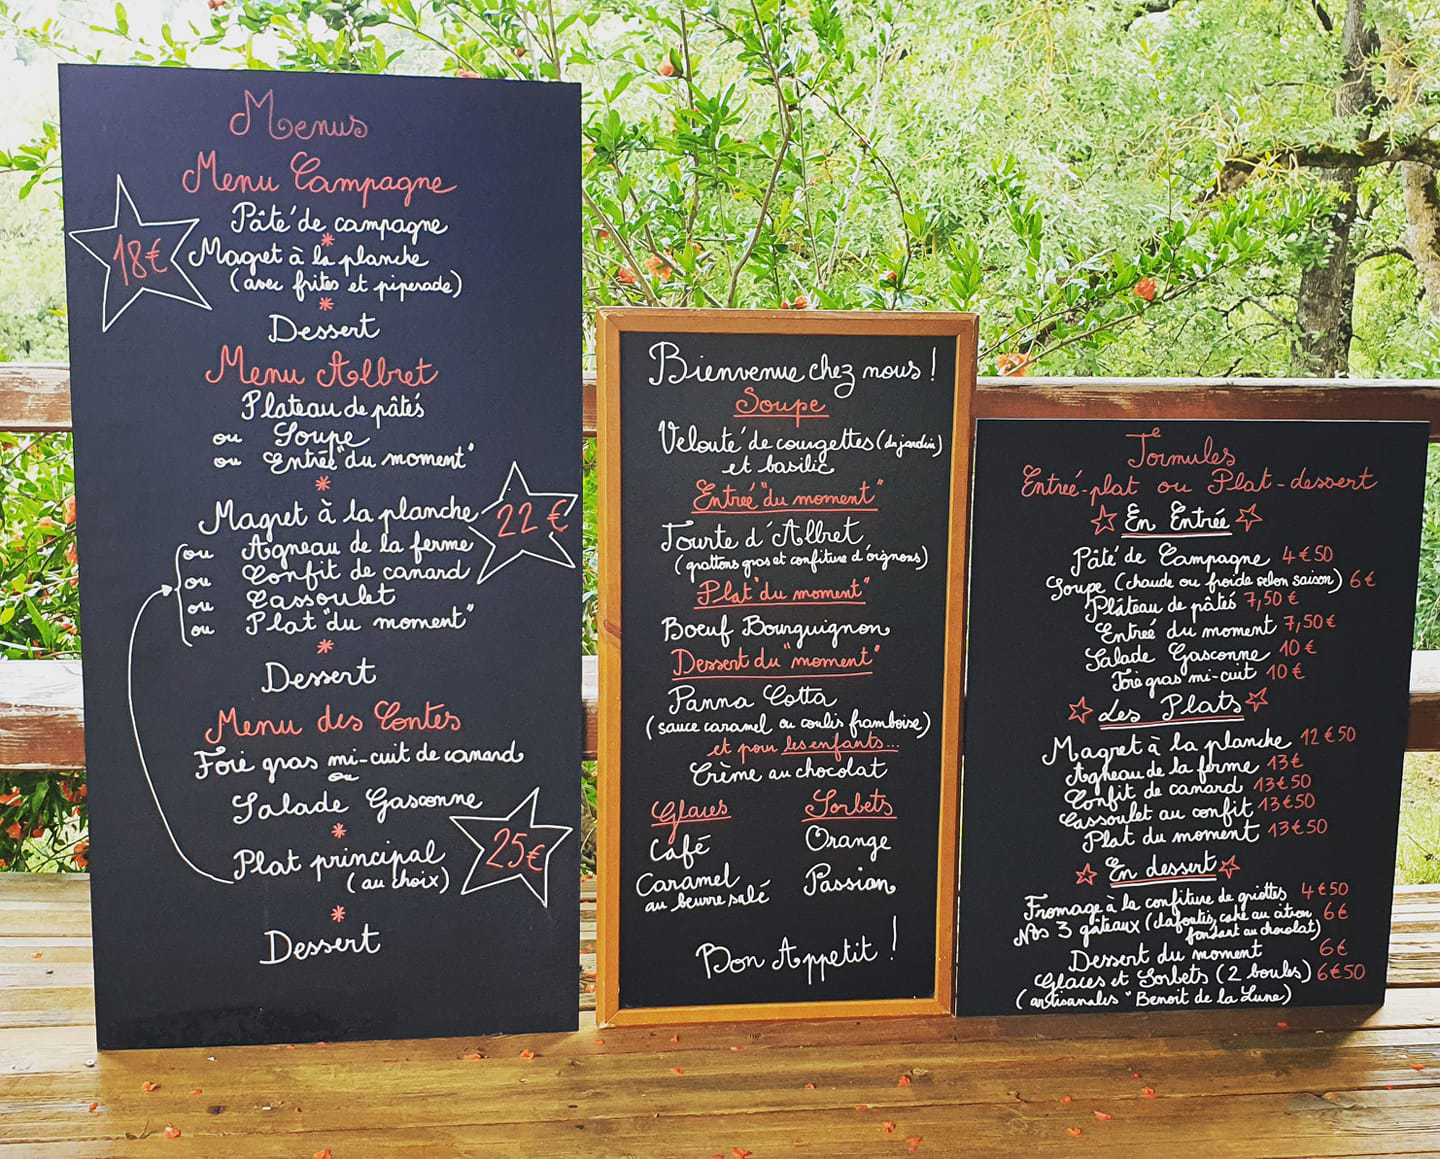 Menus
Menu Campagne
18€
Pâté de campagne
*
Magret à la planche
(avec frites et piperade)
*
Dessert
Menu Albret
Plateau de pâtés
ou Soupe
ou Entrée "du moment"
*
22€
Magret à la planche
ou Agneau de la ferme
ou Confit de canard
ou Cassoulet
ou Plat "du moment"
*
Dessert
Menu des Contes
Foie gras mi-cuit de canard
ou
Salade Gasconne
*
25€
Plat principal
(au choix)
*
Dessert
Bienvenue chez nous !
Soupe
Velouté de courgettes (du jardin)
et basilic
Entrée "du moment"
Tourte d'Albret
(grattons gras et confiture d'oignons)
Plat "du moment"
Boeuf Bourguignon
Dessert du "moment"
Panna Cotta
(sauce caramel ou coulis framboise)
et pour les enfants...
Crème au chocolat
Glaces
Café
Caramel
au beurre salé
Sorbets
Orange
Passion
Bon Appetit !
Formules
Entrée-plat ou Plat-dessert
En Entrée
Pâté de Campagne 4€50
Soupe (chaude ou froide selon saison) 6€
Plâteau de pâtés 7,50€
Entrée du moment 7,50€
Salade Gasconne 10€
Foie gras mi-cuit 10€
Les Plats
Magret à la planche 12€50
Agneau de la ferme 13€
Confit de canard 13€50
Cassoulet au confit 13€50
Plat du moment 13€50
En dessert
Fromage à la confiture de griottes 4€50
Nos 3 gâteaux (clafoutis, cake au citron, 6€
fondant au chocolat)
Dessert du moment 6€
Glaces et Sorbets (2 boules) 6€50
(artisanales "Benoit de la Lune)